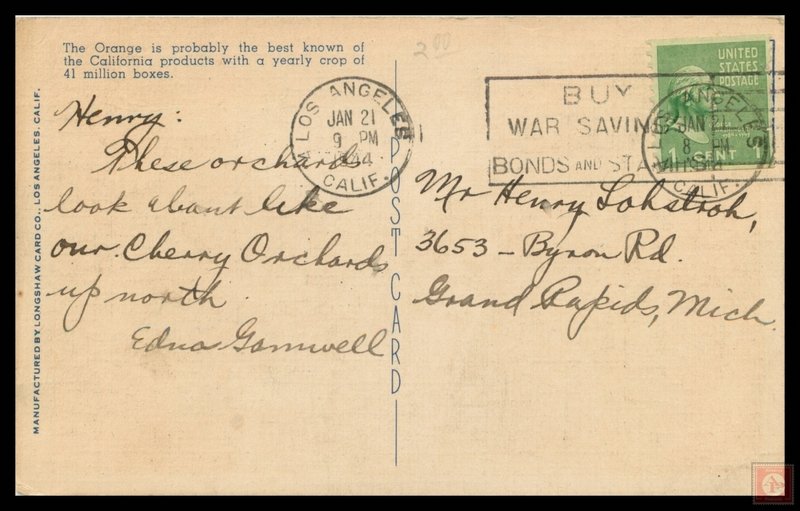 The Orange is probably the best known of
the California products with a yearly crop of
41 million boxes.
200
Henry:
These orchards
look about like
our Cherry Orchards
up north.
Edna Gamwell
MANUFACTURED BY LONGSHAW CARD CO., LOS ANGELES, CALIF.
POST CARD
LOS ANGELES
JAN 21
9 PM
44
CALIF.
BUY
WAR SAVINGS
BONDS AND STAMPS
UNITED
STATES
POSTAGE
1 CENT
LOS ANGELES
JAN 2
8 PM
CALIF.
Mr Henry Lohstroh,
3653 - Byron Rd.
Grand Rapids, Mich.